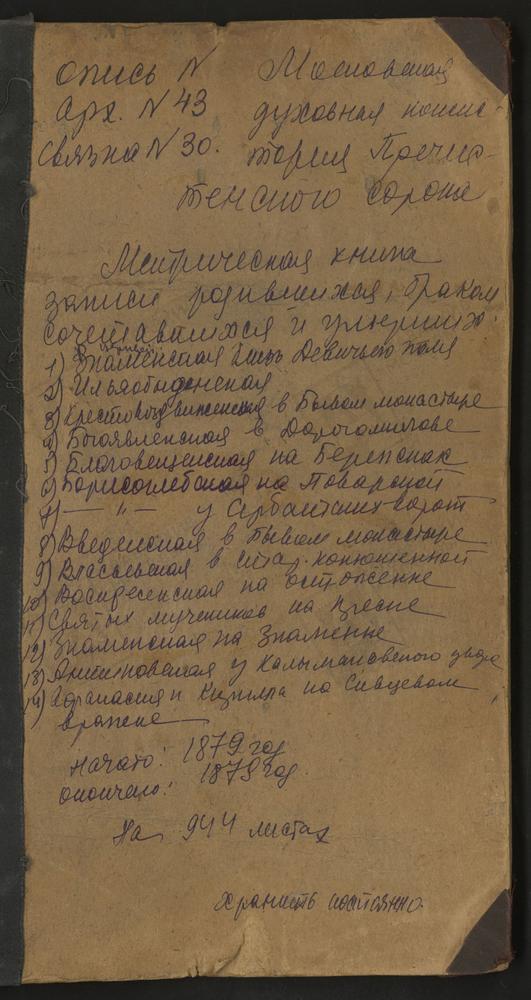 Опись N Московская
Арх. N 43 духовная консис-
Связка N 30. тория Пречис-
тенского сорока
Метрическая книга
записи родившихся, браком
сочетавшихся и умерших.
1) Знаменская близ Девичьего поля
2) Ильяобыденская
3) Крестовоздвиженская в бывом монастыре
4) Богоявленская в Дорогомилове
5) Благовещенская на Бережках
6) Борисоглебская на Поварской
7) — " — у Арбатских ворот
8) Введенская в бывом монастыре
9) Власьевская в стар. конюшенной
10) Воскресенская на остоженке
11) Святых мучеников на Пресне
12) Знаменская на Знаменке
13) у Калымажского двора
14) Афанасия и Кирилла на Сивцевом
вражке
Начато: 1879 год
окончено: 1879 год.
На 944 листах
хранить постоянно.